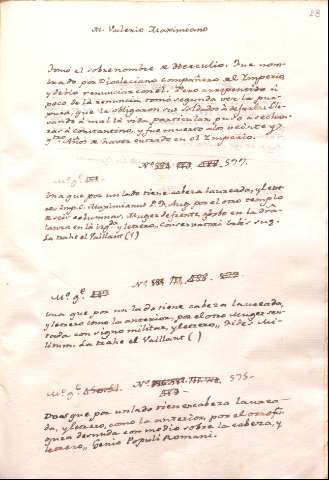 28
M. Valerio Maximiano
tomó el sobrenombre de Herculio. Fue nom-
brado por Diocleciano compañero del Imperio
y debió renunciar con él. Pero arrepentido a
poco de la renuncia tomó segunda vez la pur-
pura, que le obligaron sus soldados a dexar. Lle-
vando a mal la vida particular pasó a
a Constantino, y fue muerto a los veinte y
Años de haver entrado en el Imperio.
Nº 577.
Mº gº
Una que por un lado tiene cabeza laureada, y letre-
ro Imp. C. Maximianus P. F. Aug. por el otro templo
de seis columnas. Muger de frente, globo en la dra.
lanza en la izqda y letrero, Conservatores Urbis suæ.
La trahe el Vaillant (1)
Mº gº Nº
Una que por un lado tiene cabeza laureada,
y letrero como la anterior, por el otro Muger sen-
tada con signo militar, y letrero,, Fides Mi-
litum. La trahe el Vaillant ( )
Mº gº Nº 575.
Dos que por un lado tienen cabeza laurea-
da, y letrero, como la anterior, por el otro fi-
gura desnuda con modio sobre la cabeza, y
letrero,, Genio Populi Romani.